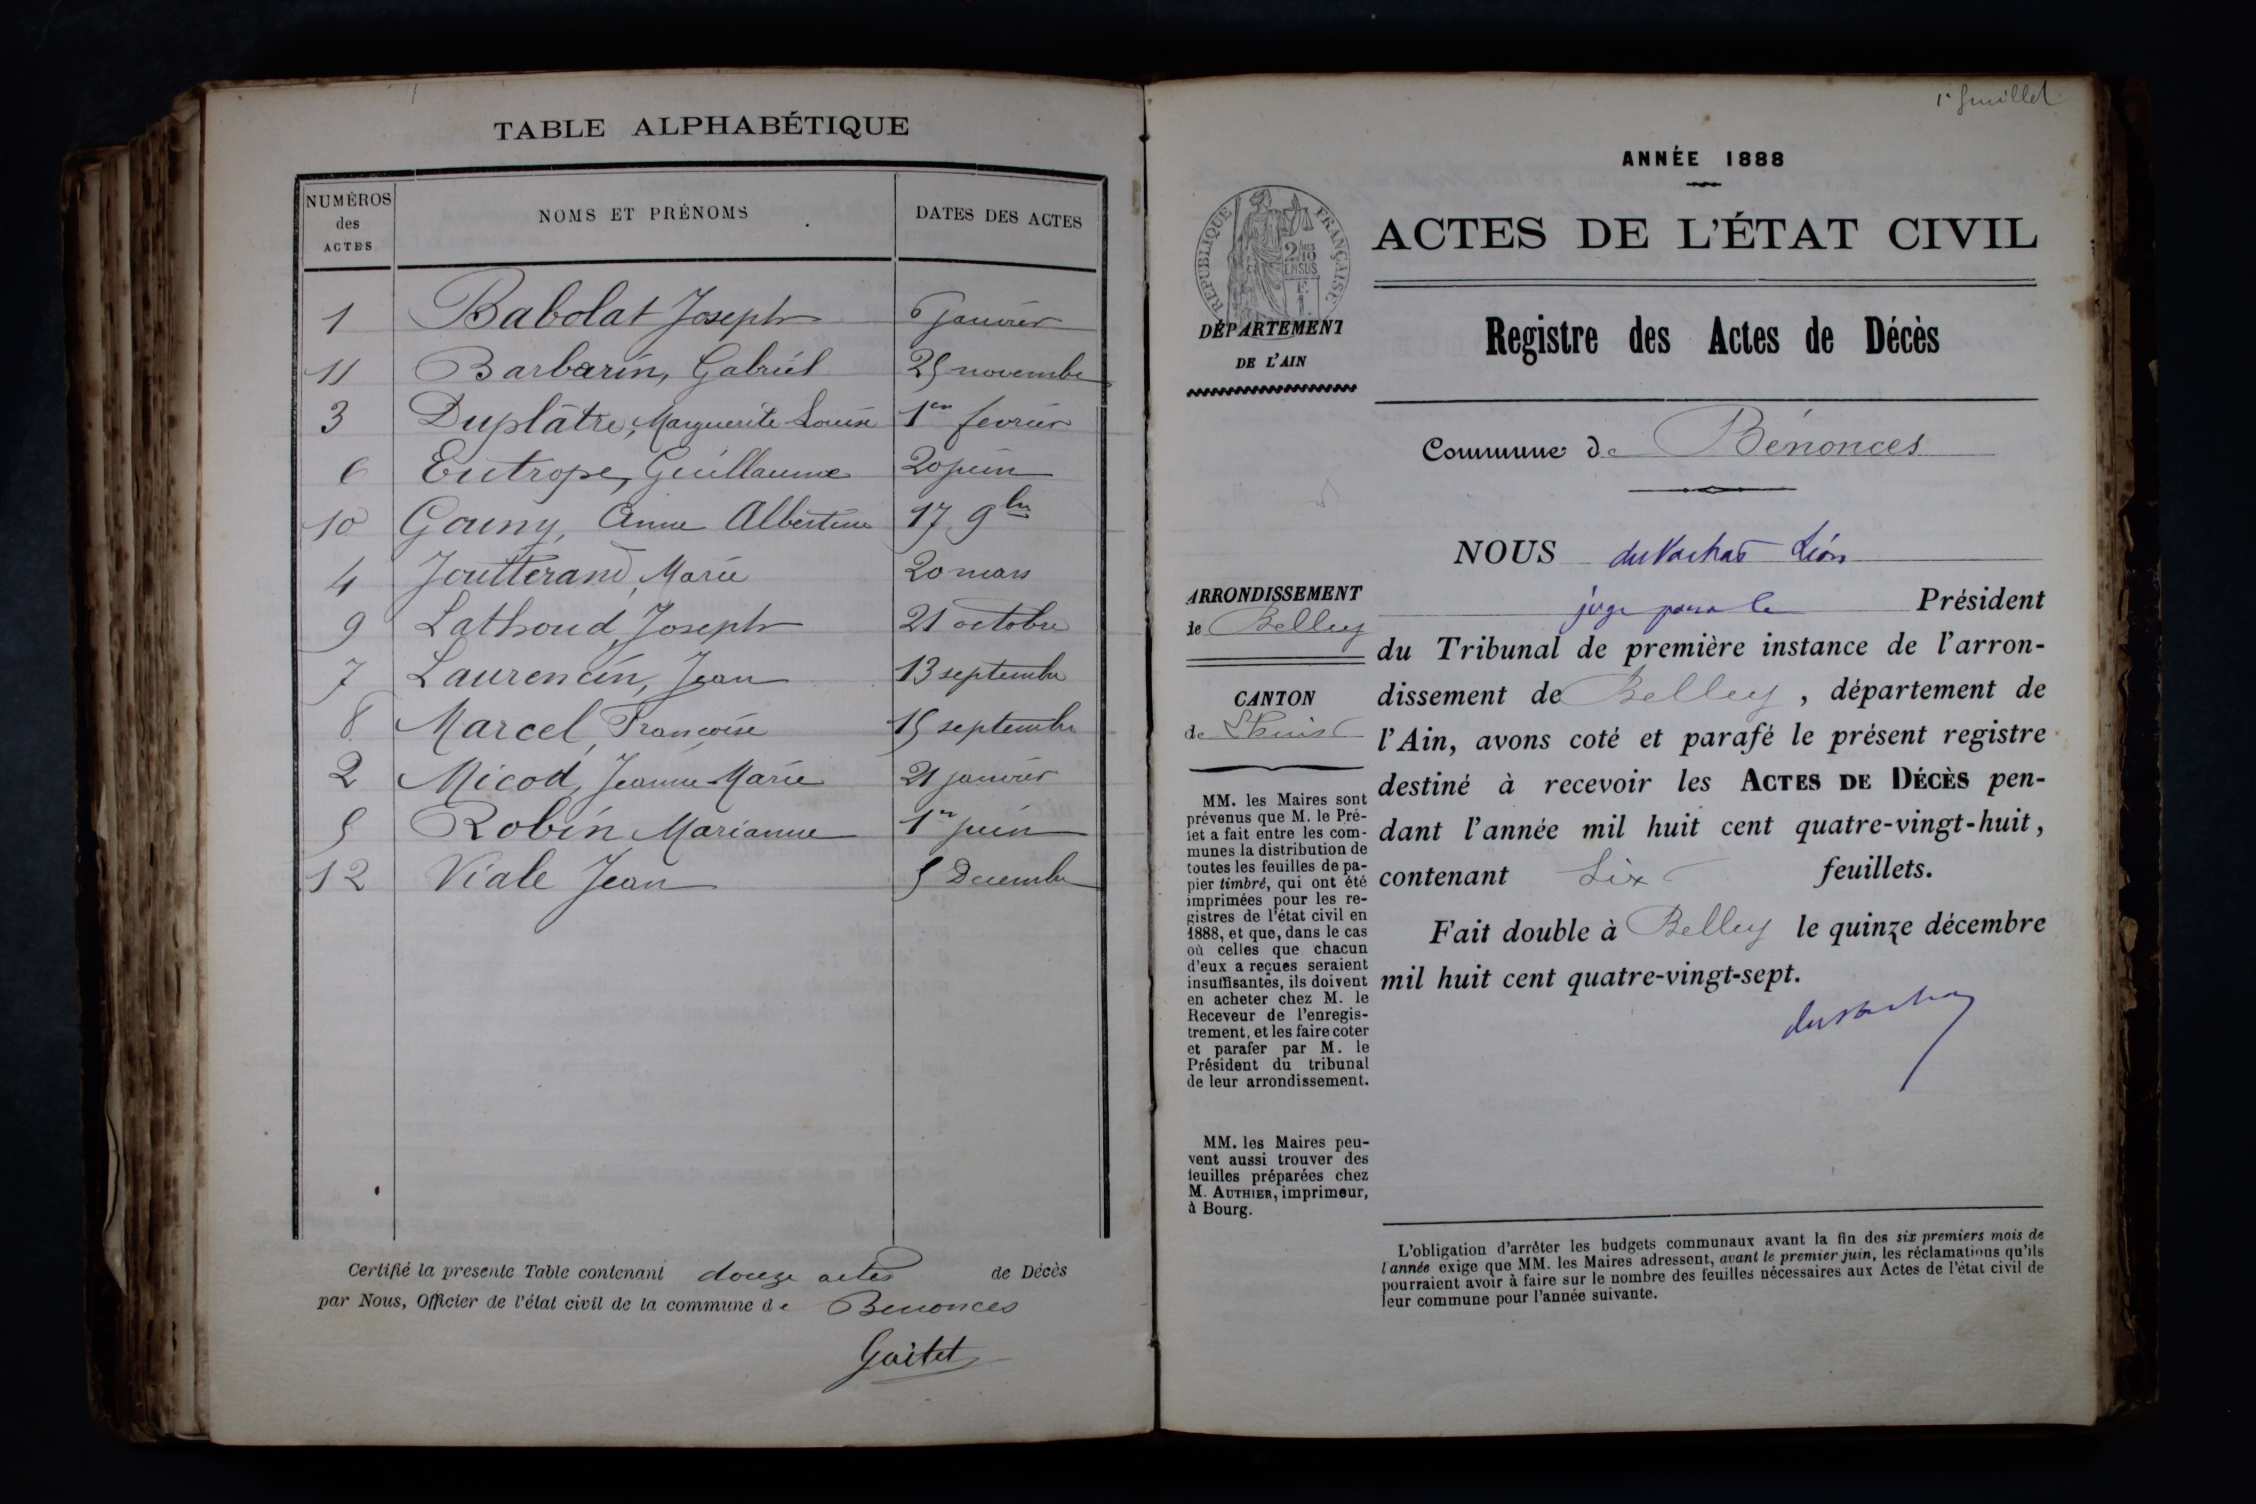 TABLE ALPHABÉTIQUE
NUMÉROS
des
ACTES
NOMS ET PRÉNOMS
DATES DES ACTES
1 Babolat Joseph 6 janvier
11 Barbarin, Gabriel 25 novembre
3 Duplâtre, Marguerite Louise 1er fevrier
6 Eutrope, Guillaume 20 juin
10 Gouny, Anne Albertine 17 9bre
4 Joutterand, Marie 20 mars
9 Lathoud, Joseph 21 octobre
7 Laurencin, Jean 13 septembre
8 Marcel, Françoise 15 septembre
2 Micod, Jeanne Marie 21 janvier
5 Robin Marianne 1er juin
12 Viale Jean 5 Decembre
Certifié la presente Table contenant douze actes de Décès
par Nous, Officier de l'état civil de la commune de Benonces
Gaitet
1er feuillet
ANNÉE 1888
RÉPUBLIQUE FRANÇAISE
ACTES DE L'ÉTAT CIVIL
DÉPARTEMENT
DE L'AIN
Registre des Actes de Décès
Commune de Bénonces
NOUS du Vachat Léon
juge pour le Président
du Tribunal de première instance de l'arron-
dissement de Belley, département de
l'Ain, avons coté et parafé le présent registre
destiné à recevoir les ACTES DE DÉCÈS pen-
dant l'année mil huit cent quatre-vingt-huit,
contenant Six feuillets.
Fait double à Belley le quinze décembre
mil huit cent quatre-vingt-sept.
du Vachat
ARRONDISSEMENT
de Belley
CANTON
de Lhuis
MM. les Maires sont
prévenus que M. le Pré-
fet a fait entre les com-
munes la distribution de
toutes les feuilles de pa-
pier timbré, qui ont été
imprimées pour les re-
gistres de l'état civil en
1888, et que, dans le cas
où celles que chacun
d'eux a reçues seraient
insuffisantes, ils doivent
en acheter chez M. le
Receveur de l'enregis-
trement, et les faire coter
et parafer par M. le
Président du tribunal
de leur arrondissement.
MM. les Maires peu-
vent aussi trouver des
feuilles préparées chez
M. AUTHIER, imprimeur,
à Bourg.
L'obligation d'arrêter les budgets communaux avant la fin des six premiers mois de
l'année exige que MM. les Maires adressent, avant le premier juin, les réclamations qu'ils
pourraient avoir à faire sur le nombre des feuilles nécessaires aux Actes de l'état civil de
leur commune pour l'année suivante.